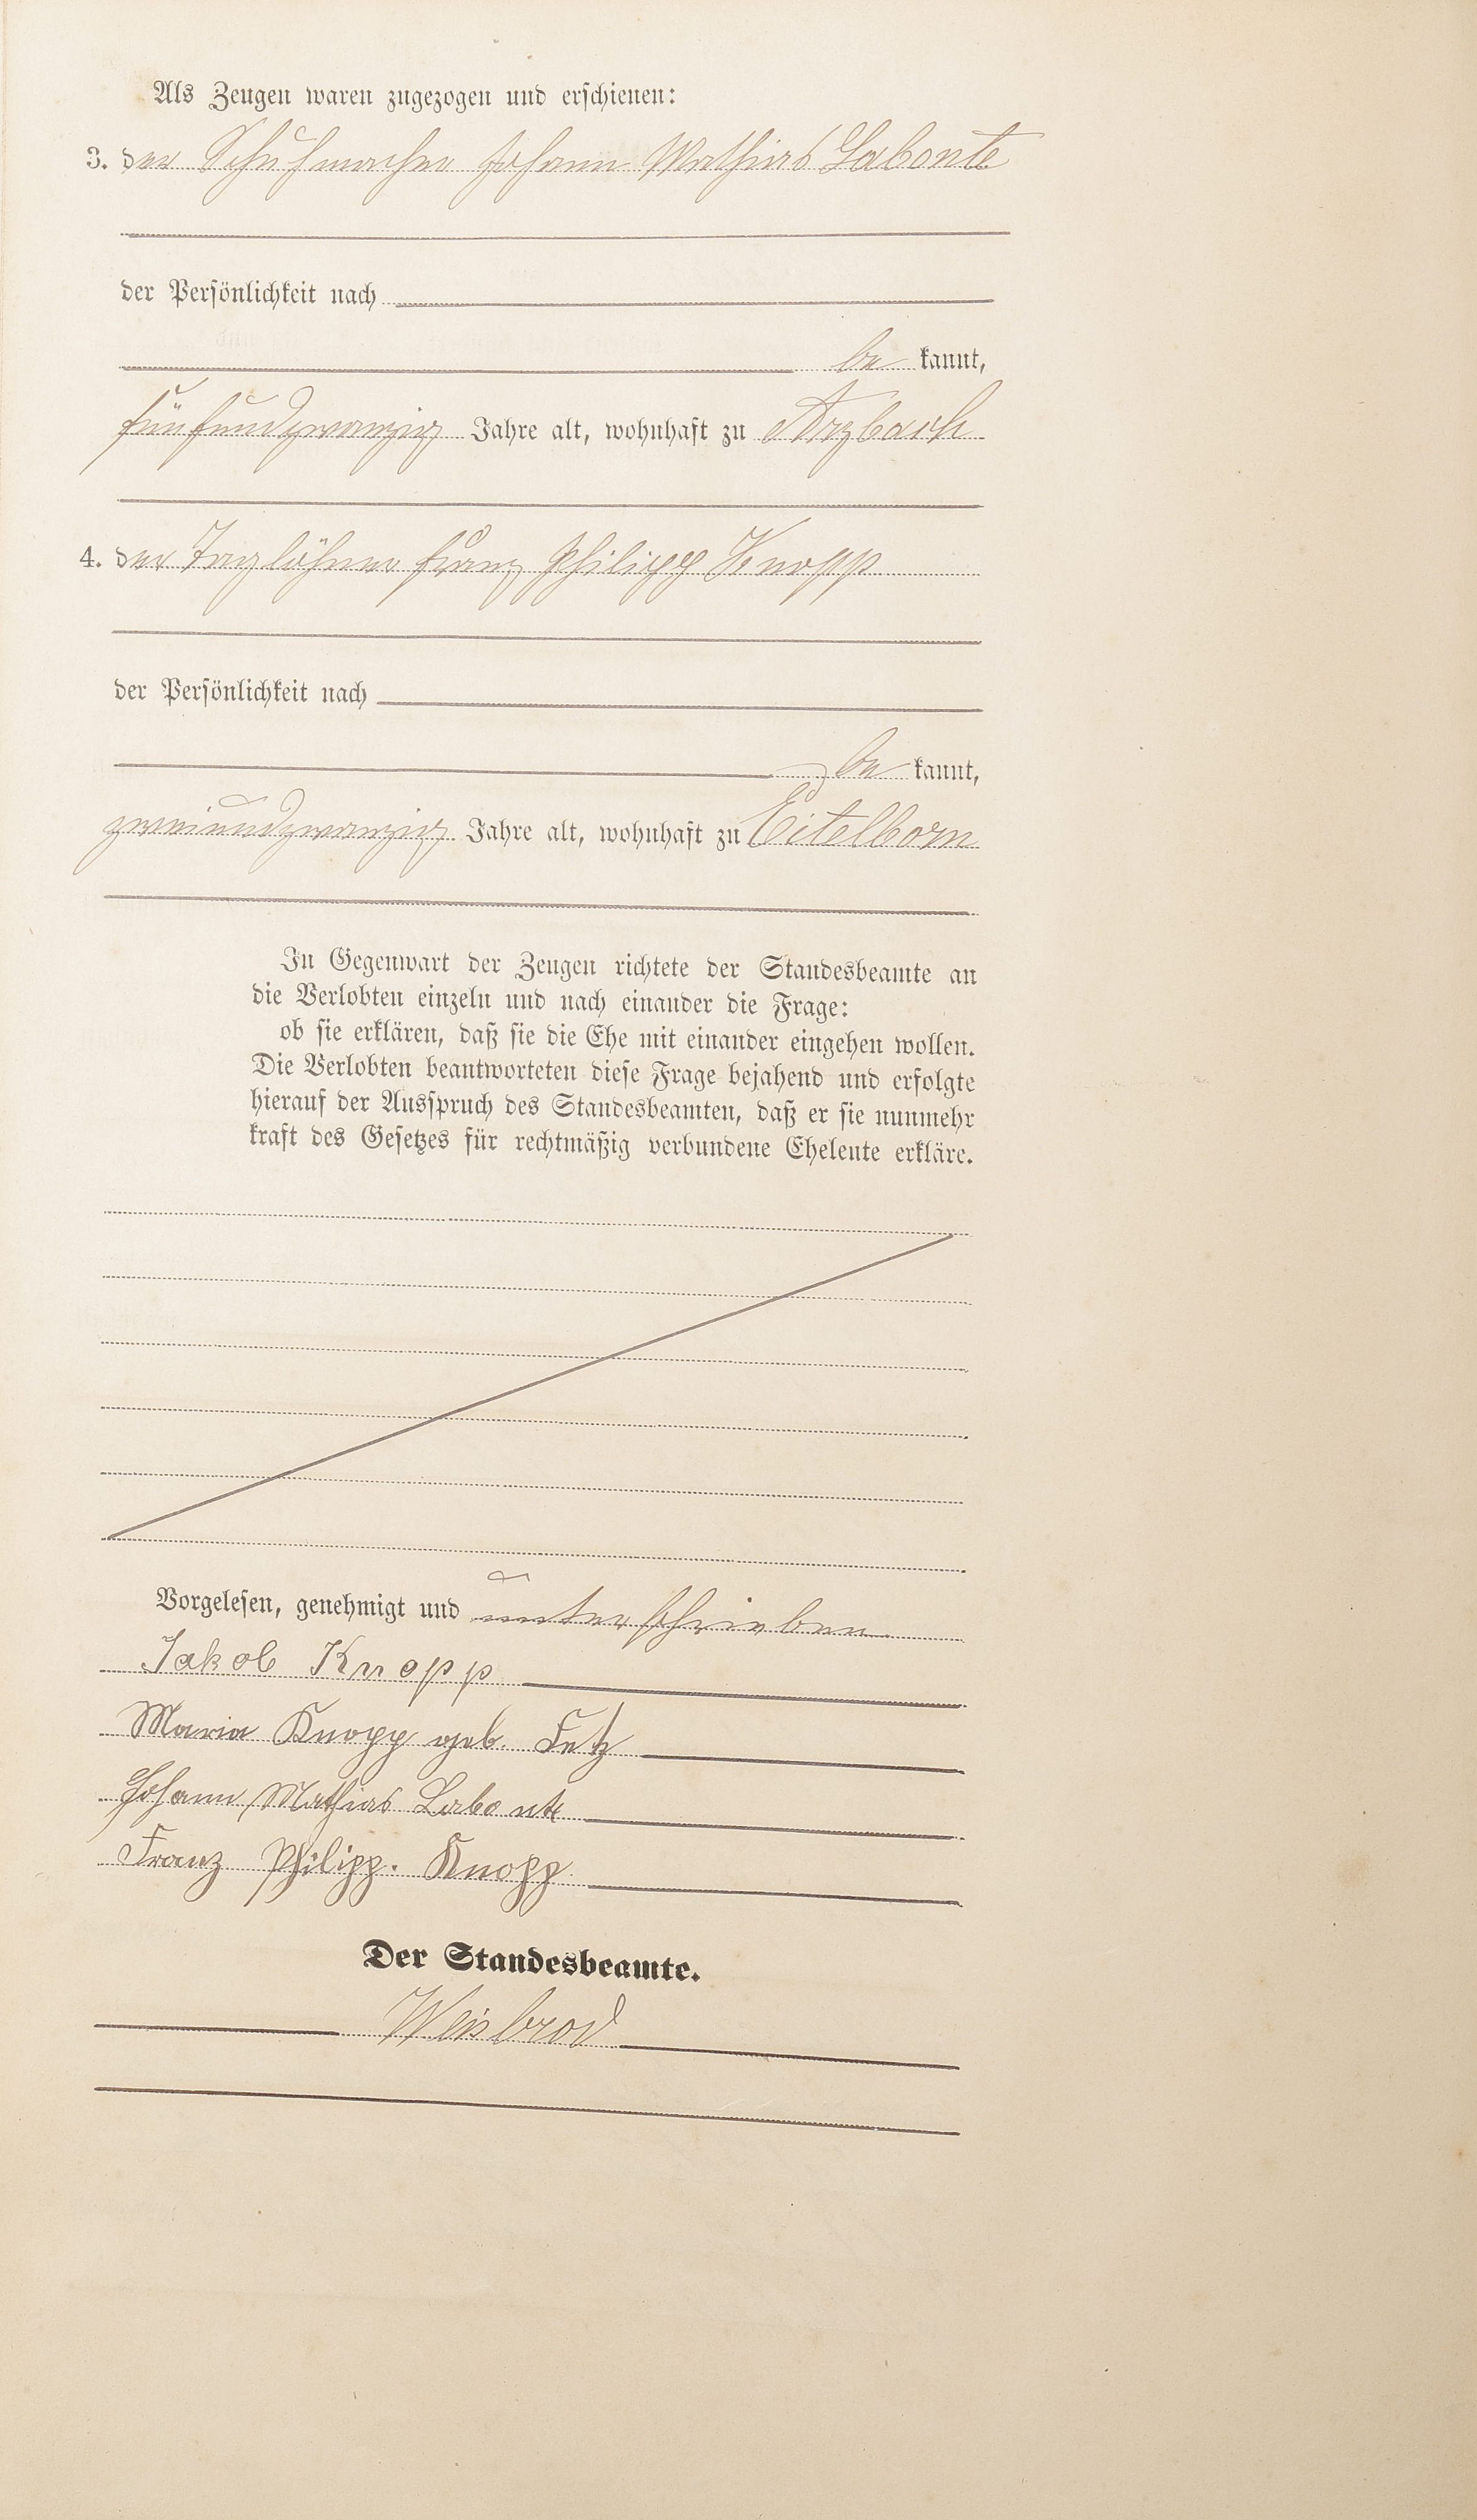 Als Zeugen waren zugezogen und erschienen:
3. der Schuhmacher Johann Mathias Labonte
der Persönlichkeit nach
be kannt,
fünfundzwanzig Jahre alt, wohnhaft zu Arzbach
4. der Taglöhner Franz Philipp Knopp
der Persönlichkeit nach
be kannt,
zweiundzwanzig Jahre alt, wohnhaft zu Eitelborn
In Gegenwart der Zeugen richtete der Standesbeamte an
die Verlobten einzeln und nach einander die Frage:
ob sie erklären, daß sie die Ehe mit einander eingehen wollen.
Die Verlobten beantworteten diese Frage bejahend und erfolgte
hierauf der Ausspruch des Standesbeamten, daß er sie nunmehr
kraft des Gesetzes für rechtmäßig verbundene Eheleute erkläre.
Vorgelesen, genehmigt und unterschrieben
Jakob Knopp
Maria Knopp geb. Fetz
Johann Mathias Labonte
Franz Philipp. Knopp
Der Standesbeamte.
Weisbrod